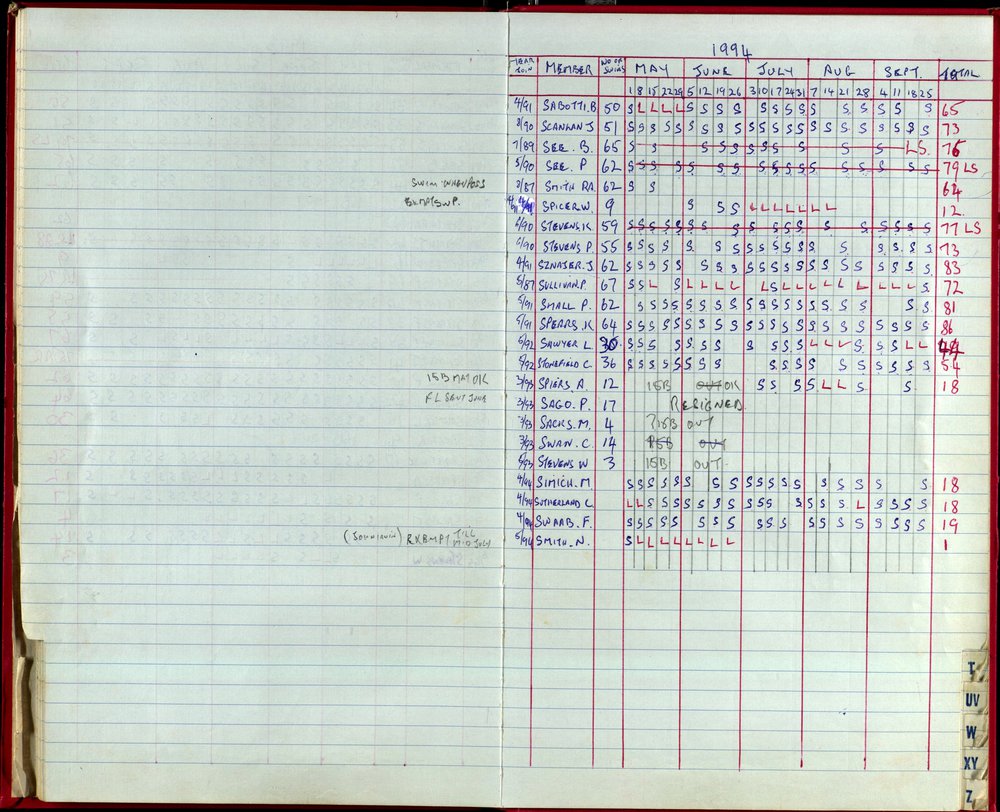 1994
YEAR JOIN MEMBER NO OF SWIMS MAY JUNE JULY AUG SEPT. TOTAL
1 8 15 22 29 5 12 19 26 3 10 17 24 31 7 14 21 28 4 11 18 25
4/91 SABOTTI.B 50 S L L L L S S S S S S S S S S S S S S S 65
8/90 SCANLAN J 51 S S S S S S S S S S S S S S S S S S S S S S 73
7/89 SEE. B. 65 S S S S S S S S S S S S L S. 76
5/90 SEE. P 62 S S S S S S S S S S S S S S S S S 79 LS
SWIM WHEN POSS 3/87 SMITH RA. 62 S S 64
EXMPT SWP. SPICER.W. 9 S S S L L L L L L L 12.
6/90 STEVENS.K 59 S S S S S S S S S S S S S S S S S S 77 LS
6/90 STEVENS P. 55 S S S S S S S S S S S S S S S S S S 73
4/91 SZNAJER.J. 62 S S S S S S S S S S S S S S S S S S S S S 83
5/87 SULLIVAN.P. 67 S S L S L L L L L S L L L L L L L L L S 72
5/91 SMALL P. 62 S S S S S S S S S S S S S S S S S S S 81
5/91 SPEARS.K 64 S S S S S S S S S S S S S S S S S S S S S S 86
5/92 SAWYER L. 30 S S S S S S S S S S S L L L S S S L L 44
5/92 STONEFIELD C. 36 S S S S S S S S S S S S S S S S S S 54
15B MAY OK 3/93 SPIERS. A. 12 15B OUT OK S S S S L L S S. 18
FL SENT JUNE 3/93 SAGO. P. 17 RESIGNED.
3/93 SACKS. M. 4 ?15B OUT
3/93 SWAN. C. 14 15B OUT
5/93 STEVENS W 3 15B OUT.
4/94 SIMICH. M. S S S S S S S S S S S S S S S S S S 18
4/94 SUTHERLAND C. L L S S S S S S S S S S S S S S L S S S S 18
4/94 SWAAB. F. S S S S S S S S S S S S S S S S S S S 19
(JOHN IRWIN) EXEMPT TILL MID JULY 5/94 SMITH. N. S L L L L L L L L 1
T
UV
W
XY
Z